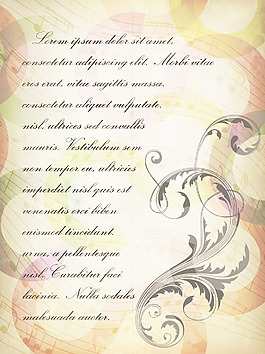 Lorem ipsum dolor sit amet,
consectetur adipiscing elit. Morbi vitae
eros erat, vitae sagittis massa,
consectetur aliquet vulputate,
nisl, ultrices sed convallis
mauris. Vestibulum sem
non tempor eu, ultricies
imperdiet nisl quis est
venenatis orci biben
euismod tincidunt.
urna, a pellentesque
nisl. Curabitur faci
lacinia. Nulla sodales
malesuada auctor.